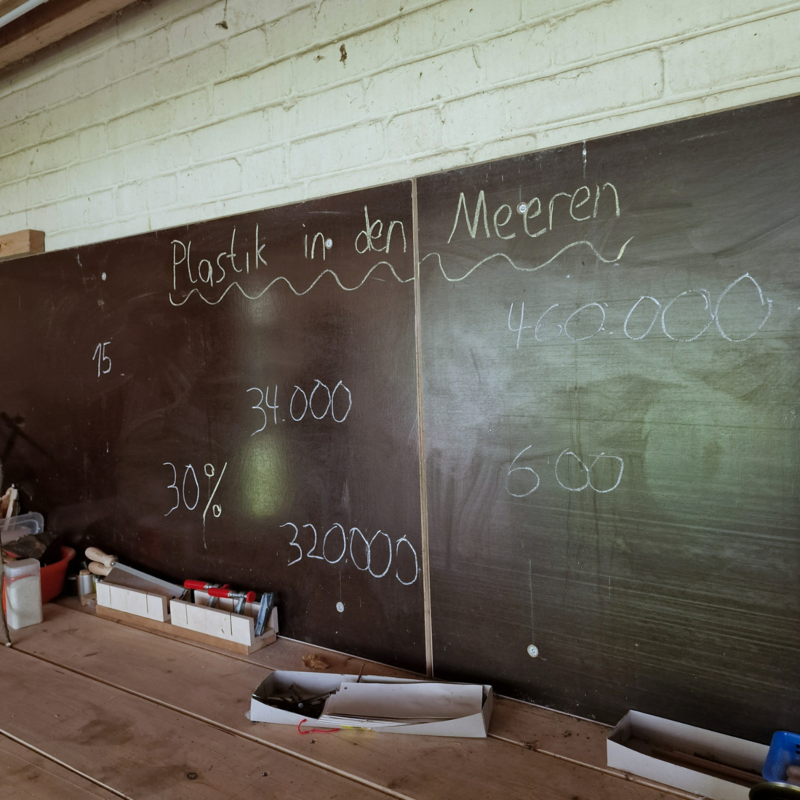 Plastik in den Meeren
460.000
15
34.000
30%
600
320.000